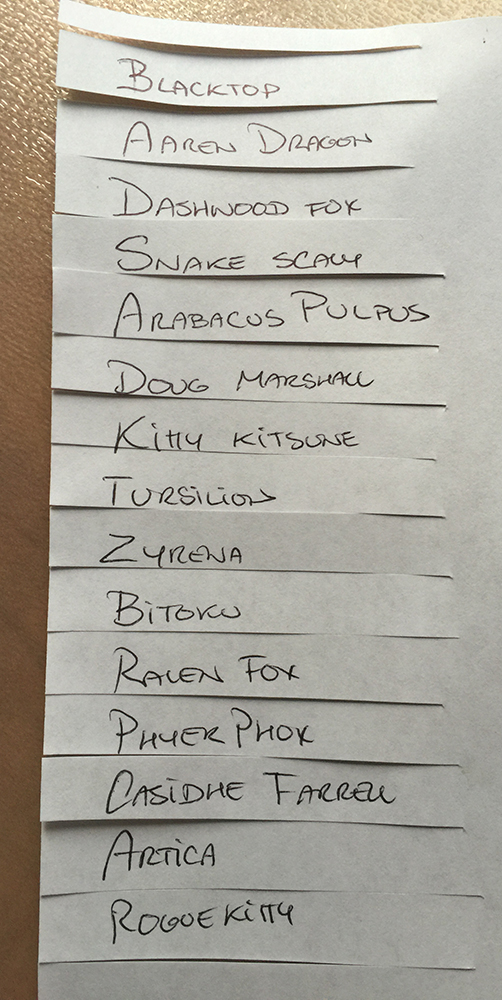 Blacktop
Aaren Dragon
Dashwood Fox
Snake Scaly
Arabacus Pulpus
Doug Marshall
Kitty Kitsune
Tursilion
Zyrena
Bitoku
Ralen Fox
Phyer Phox
Casidhe Farrell
Artica
RogueKitty